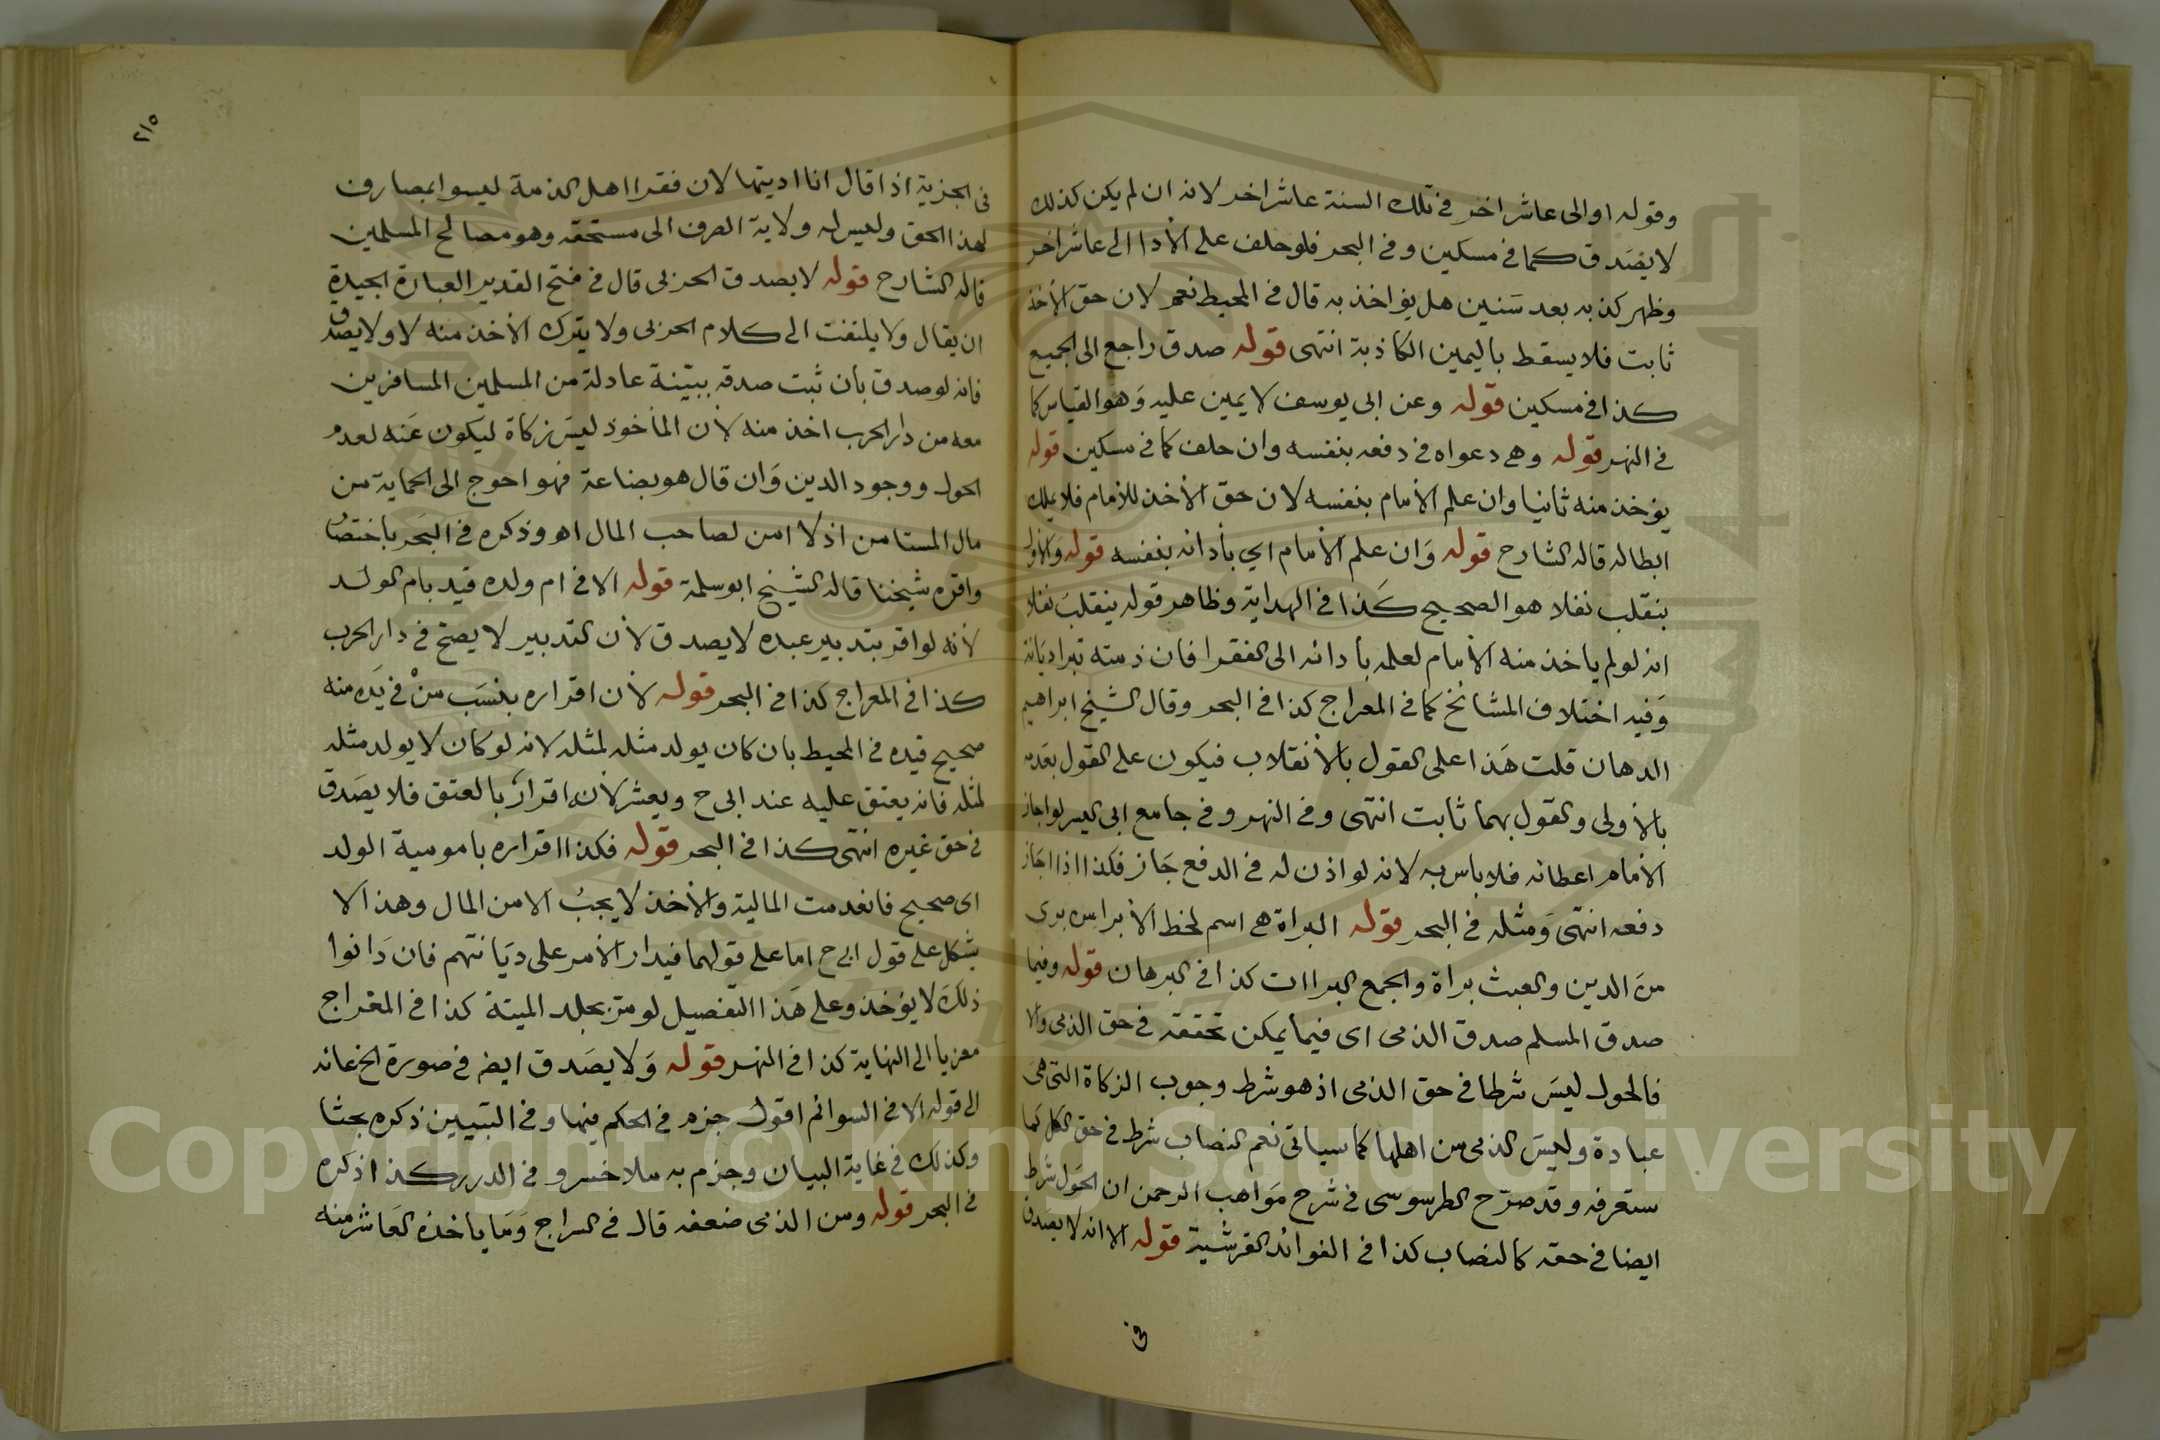 وقوله او الى عاشر اخر في تلك السنة عاشر اخر لانه ان لم يكن كذلك
لا يصدق كما في مسكين وفي البحر فلو حلف على الأدا الى عاشر اخر
وظهر كذبه بعد سنين هل يؤاخذ به قال في المحيط نعم لان حق الأخذ
ثابت فلا يسقط باليمين الكاذبة انتهى قوله صدق راجع الى الجميع
كذا في مسكين قوله وعن ابي يوسف لا يمين عليه وهو القياس كما
في النهر قوله وهي دعواه في دفعه بنفسه وان حلف كما في مسكين قوله
يؤخذ منه ثانيا وان علم الأمام بنفسه لان حق الأخذ للأمام فلا يملك
ابطاله قاله الشارح قوله وان علم الأمام اي بأدائه بنفسه قوله والأول
ينقلب نفلا هو الصحيح كذا في الهداية وظاهر قوله ينقلب نفلا
انه لو لم ياخذ منه الأمام لعلمه بأدائه الى الفقرا فان ذمته تبرا ديانة
وفيه اختلاف المشائخ كما في المعراج كذا في البحر وقال الشيخ ابراهيم
الدهان قلت هذا على القول بالأنقلاب فيكون على القول بعدمه
بالأولى والقول بهما ثابت انتهى وفي النهر وفي جامع ابي اليسر لو اجاز
الأمام اعطائه فلا باس به لانه لو اذن له في الدفع جاز فكذا اذا اجاز
دفعه انتهى ومثله في البحر قوله البراة هي اسم لخط الأبرا من برى
من الدين والعيث براة والجمع البراات كذا في البرهان قوله وفيما
صدق المسلم صدق الذمى اى فيما يمكن تحققه في حق الذمى والا
فالحول ليس شرطا في حق الذمى اذ هو شرط وجوب الزكاة التى هى
عبادة وليس الذمى من اهلها كما سياتى نعم النصاب شرط في حق الكل كما
ستعرفه وقد صرح الطرسوسى في شرح مواهب الرحمن ان الحول شرط
ايضا في حقه كالنصاب كذا في الفوائد القرشية قوله الا انه لا يصدق
في
٢١٥
في الجزية اذا قال انا اديتها لان فقرا اهل الذمة ليسوا بمصارف
لهذا الحق وليس له ولاية الصرف الى مستحقه وهو مصالح المسلمين
قاله الشارح قوله لا يصدق الحربى قال في فتح القدير العبارة الجيدة
ان يقال ولا يلتفت الى كلام الحربى ولا يترك الأخذ منه لا ولا يصدق
فانه لو صدق بان ثبت صدقه ببينة عادلة من المسلمين المسافرين
معه من دار الحرب اخذ منه لأن المأخوذ ليس زكاة ليكون عنه لعدم
الحول ووجود الدين وان قال هو بضاعة فهو احوج الى الحماية من
مال المستامن اذ لا امن لصاحب المال اهـ وذكره في البحر باختصار
واقره شيخنا قاله الشيخ ابو سلمة قوله الا في ام ولده قيد بام الولد
لأنه لو اقر بتدبير عبده لا يصدق لأن التدبير لا يصح في دار الحرب
كذا في المعراج كذا في البحر قوله لأن اقراره بنسب من في يده منه
صحيح قيده في المحيط بان كان يولد مثله لمثله لانه لو كان لا يولد مثله
لمثله فانه يعتق عليه عند ابى ح ويعشر لأنه اقرار بالعتق فلا يصدق
في حق غيره انتهى كذا في البحر قوله فكذا اقراره بامومية الولد
اى صحيح فانعدمت المالية والأخذ لا يجب الا من المال وهذا لا
يشكل على قول ابى ح اما على قولهما فيدار الأمر على ديانتهم فان دانوا
ذلك لا يؤخذ وعلى هذا التفصيل لو مر بجلد الميتة كذا في المعراج
معزيا الى النهاية كذا في النهر قوله ولا يصدق ايضا في صورة الخ عانه
الى قوله الا في السوائم اقول جزم في الحكم فيها وفي التبيين ذكره بحثا
وكذلك في غاية البيان وجزم به ملا خسرو في الدرر كذا ذكره
في البحر قوله ومن الذمى ضعفه قال في السراج وما ياخذه العاشر منه
Copyright © King Saud University